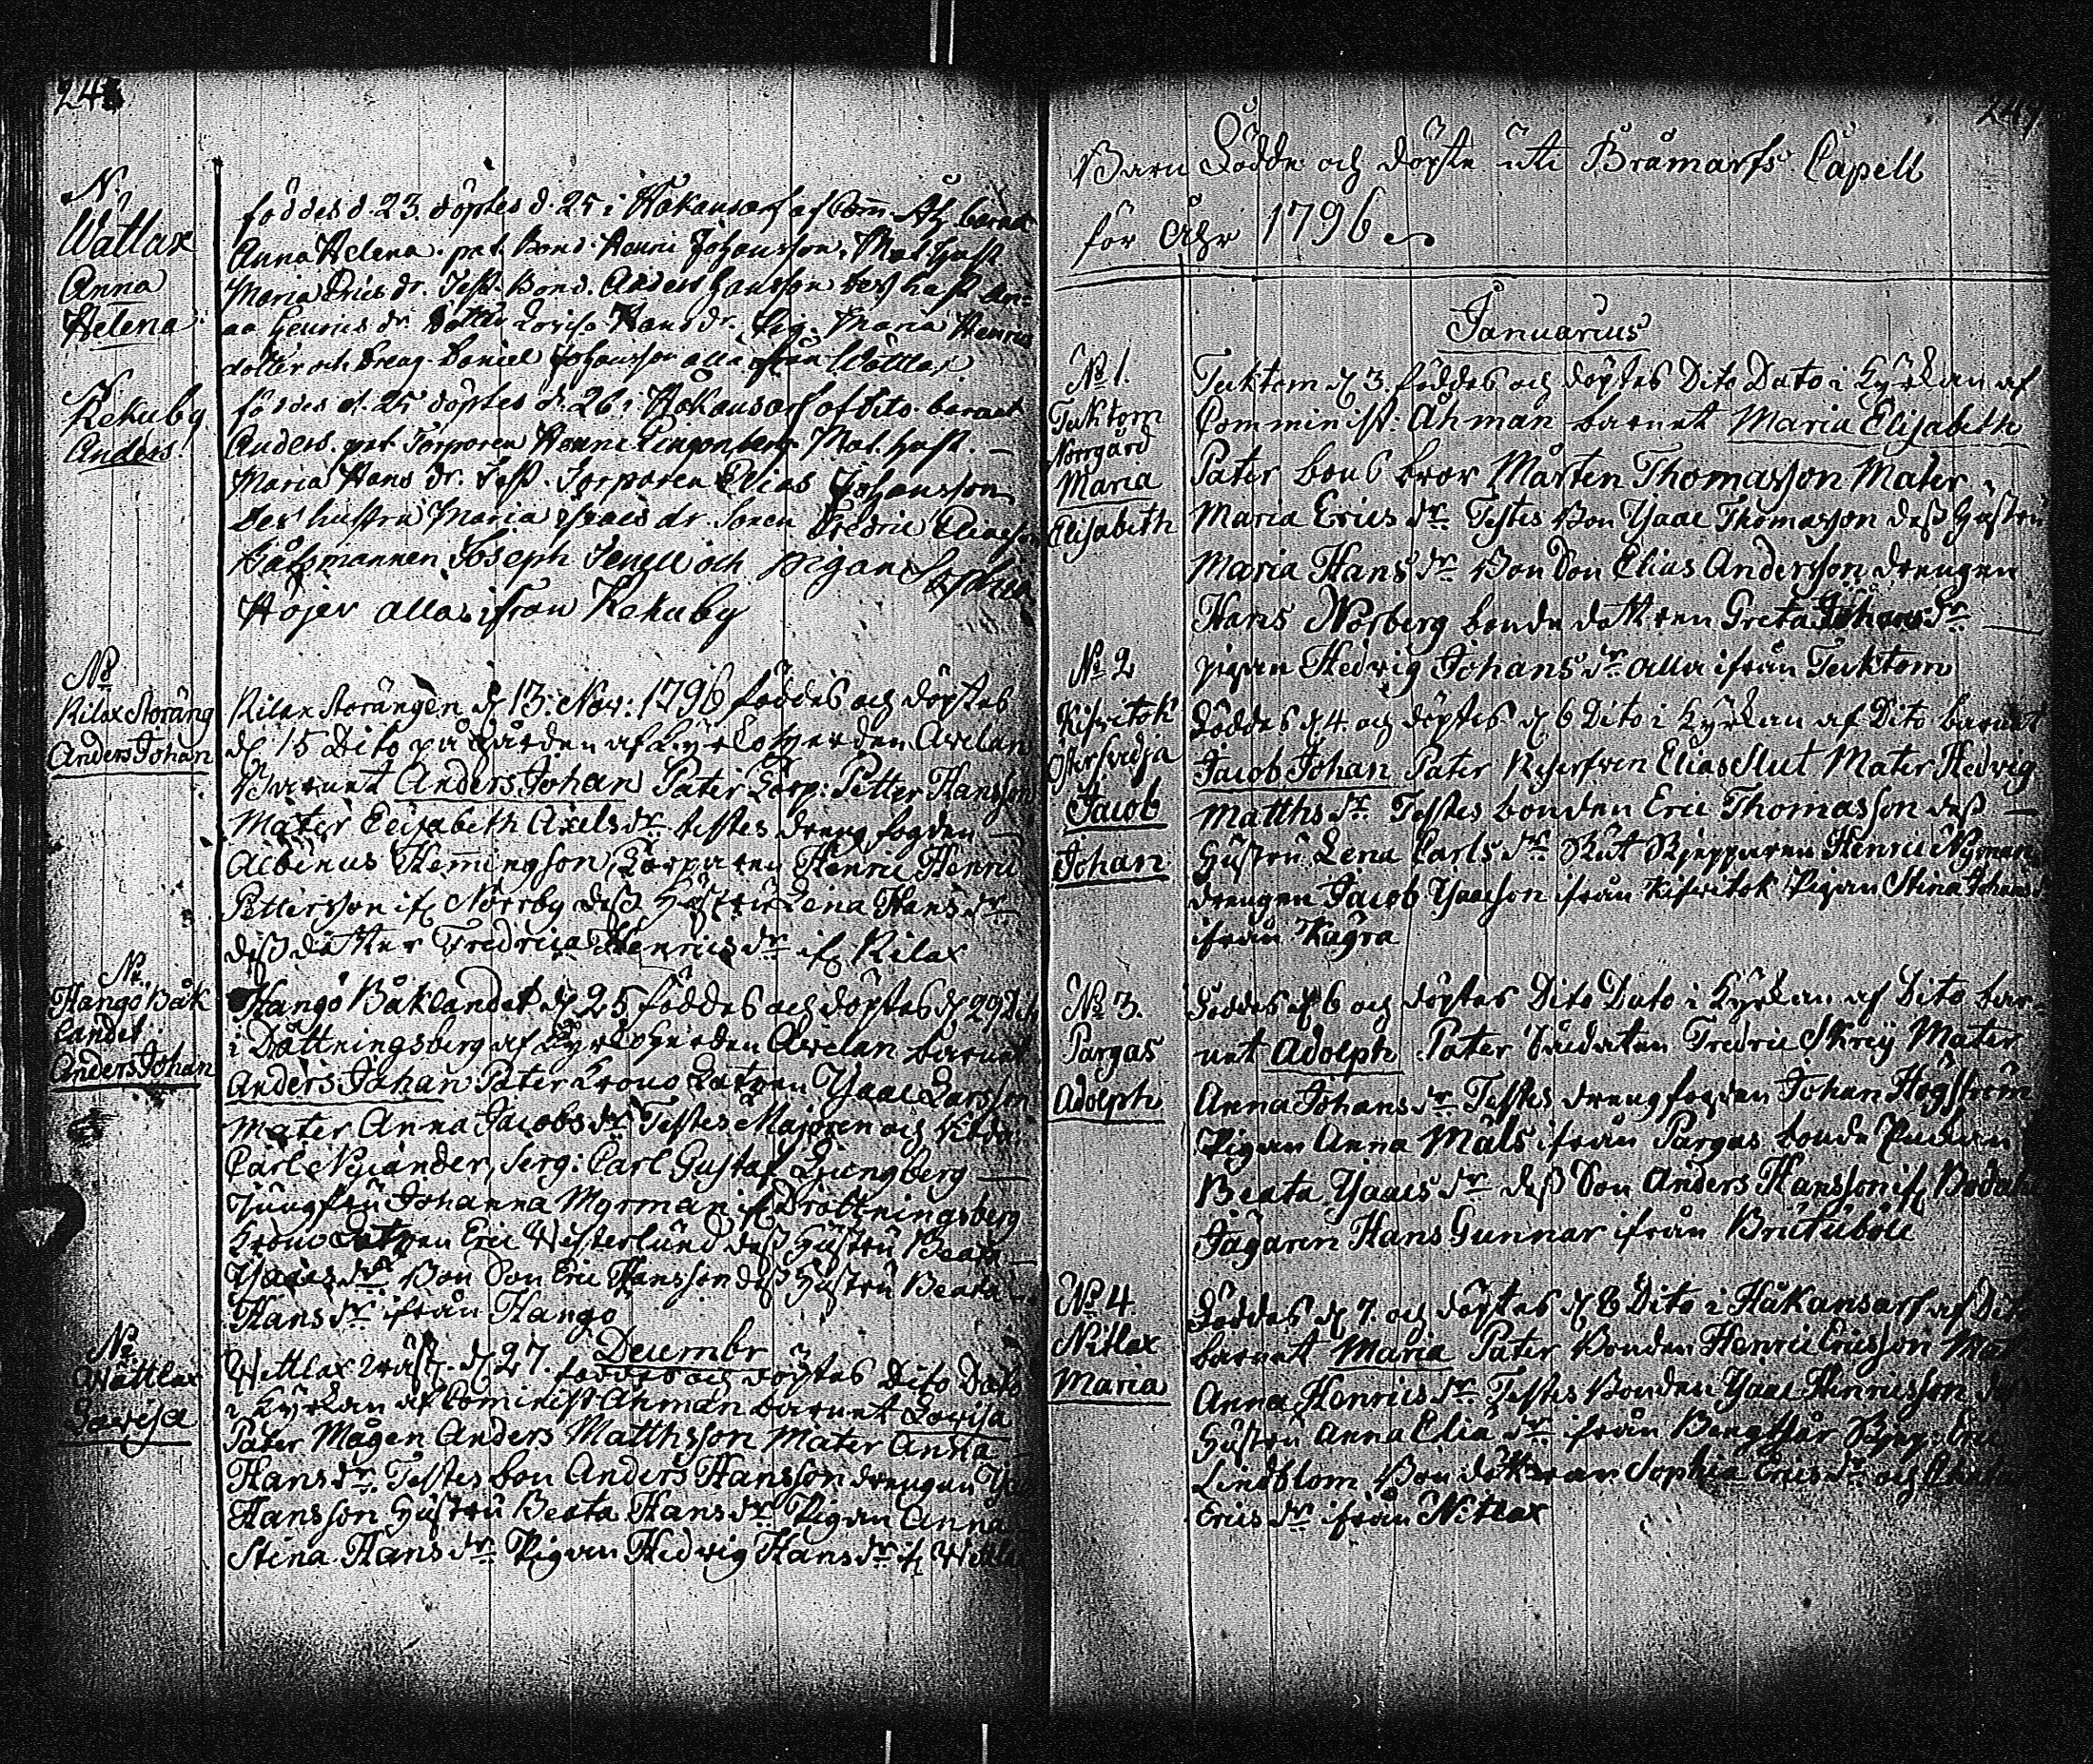 248
N.
Wättlax
Anna
Helena
föddes d. 23. döptes d. 25 i Håkansarf af Com. Åh. barnet
Anna Helena. pat. Bond. Henric Johansson. Mat. hust
Maria Erics dr. Test. Bond. Anders Hansson des hust. An-
na Henrics dr. dotter Lovisa Hans dr. Pig. Maria Henrics
dotter och Dreng. Daniel Johansson alla ifrån Wättlax
N.
Rekuby
Anders
föddes d. 25 döptes d. 26 i Håkansarf af dito barnet
Anders. pat. Torparen Henric Lingonberg Mat. hust.
Maria Hans dr. Test. Torparen Elias Johansson
des hustru Maria Isacs dr. Sonen Fredric Eliasson
Båtsmannen Joseph Senell och Pigan Sophia
Höjer alla ifrån Rekuby
No
Rilax Storäng
Anders Johan
Rilax Storängen d. 13. Nov: 1796 föddes och döptes
d. 15 Dito på gården af Kyrkoherden Avelan
Barnet Anders Johan Pater Torp: Petter Hansson
Mater Elisabeth Axels dr testes dreng fogden
Albinus Hemingson, Torparen Henric Henric
Pettersson if. Norrby dess Hustru Lena Hans dr
dess dotter Fredrica Henrics dr if. Rilax
No.
Hangö Båk
landet
Anders Johan
Hangö Båklandet d. 25 föddes och döptes d. 29 Dito
i Dåttningsberg af Kyrkoherden Avelan barnet
Anders Johan Pater Krono Lotsen Isaac Larsson
Mater Anna Jacobs dr Testes Majoren och Ridd:
Carl Nycander, Serg: Carl Gustaf Ljungberg
Jungfru Johanna Myrman if. Drottningsberg
Krono Lotsen Eric Westerlund dess Hustru Beata
Isaacs dr Bon Son Eric Hansson dess Hustru Beata
Hans dr ifrån Hangö
Decembr
No
Wättlax
Lovisa
Wettlax Wäst. d. 27. föddes och döptes Dito Dato
i Kyrkan af Cominist Åhman barnet Lovisa
Pater Mågen Anders Matthsson Mater Anna
Hans dr. Testes bon Anders Hansson drengen
Hansson Hustru Beata Hans dr Pigan Anna
Stina Hans dr Pigan Hedvig Hans dr if. Wettlax
249
Barn Födde och döpte uti Bråmarfs Capell
för Åhr 1796
Januarius
No 1.
Tecktom
Norrgård
Maria
Elisabeth
Tecktom d. 3. föddes och döptes Dito Dato i Kyrkan af
Comminist: Åhman barnet Maria Elisabeth
Pater bons bror Mårten Thomasson Mater
Maria Erics dr Testes Bon Isaac Thomasson dess Hustru
Maria Hans dr Bon Son Elias Andersson drengen
Hans Norberg bonde dottren Greta Johans dr
pigan Hedvig Johans dr alla ifrån Tecktom
No 2
Jacob
Johan
Föddes d. 4. och döptes d. 6 Dito i Kyrkan af Dito barnet
Jacob Johan Pater Reserfven Elias Slut Mater Hedvig
Matths dr Testes bonden Eric Thomasson dess
Hustru Lena Carls dr Skut Skepparen Henric Nyman
drengen Jacob Isacson ifrån Kifvitok Pigan Stina Johans dr
ifrån Kagra
No 3.
Pargas
Adolph
Föddes d. 6 och döptes Dito Dato i Kyrkan af Dito bar-
net Adolph Pater Soldaten Fredric Skrij Mater
Anna Johans dr Testes drengfogden Johan Högström
Pigan Anna Måls ifrån Pargas bonde Enkan
Beata Isaacs dr dess Son Anders Hansson if.
Jägaren Hans Gunnar ifrån Bruticböle
No 4.
Nitlax
Maria
Föddes d. 7. och döptes d. 8 Dito i Håkansarf af Dito
barnet Maria Pater Bonden Henric Ericsson Mat
Anna Henrics dr Testes Bonden Isaac Henricsson
Hustru Anna Elia dr ifrån Bengtsår Skep: Eric
Lindblom Bon döttrar Sophia Erics dr och
Erics dr ifrån Nitlax